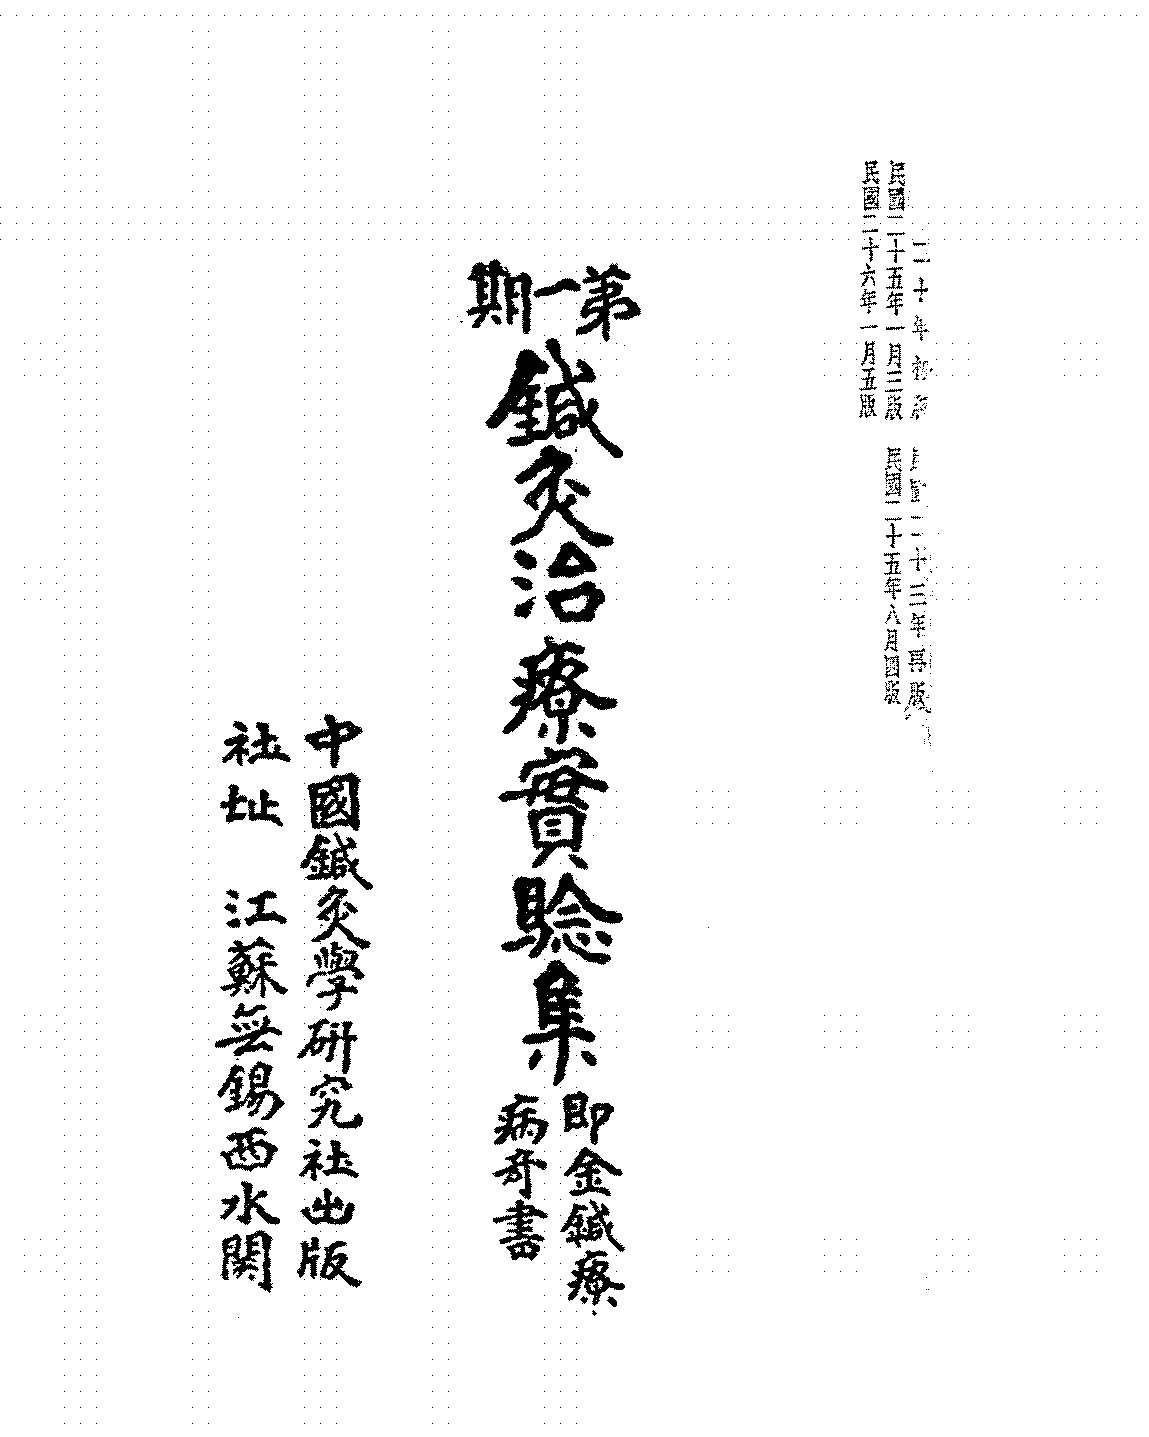 二十年初版
民國二十三年再版
民國二十五年一月三版
民國二十五年八月四版
民國二十六年一月五版
第一期
鍼灸治療實驗集
即金鍼療
病奇書
中國鍼灸學研究社出版
社址 江蘇無錫西水關